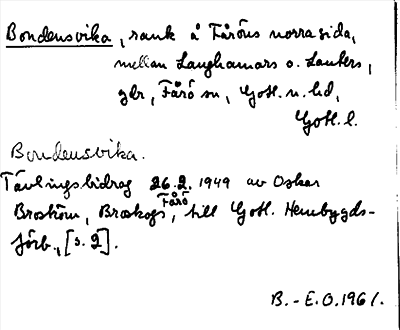 Bondensvika, vank å Fåröns norra sida,
mellan Langhamars o. Lauters,
gbr, Fårö sn, Gotl. n. hd,
Gotl. l.
Bondensvika.
Tävlingsbidrag 26.2. 1949 av Oskar
Broström, Broskogs, Fårö, till Gotl. Hembygds-
förb., [s. 2].
B. - E. O. 1961.